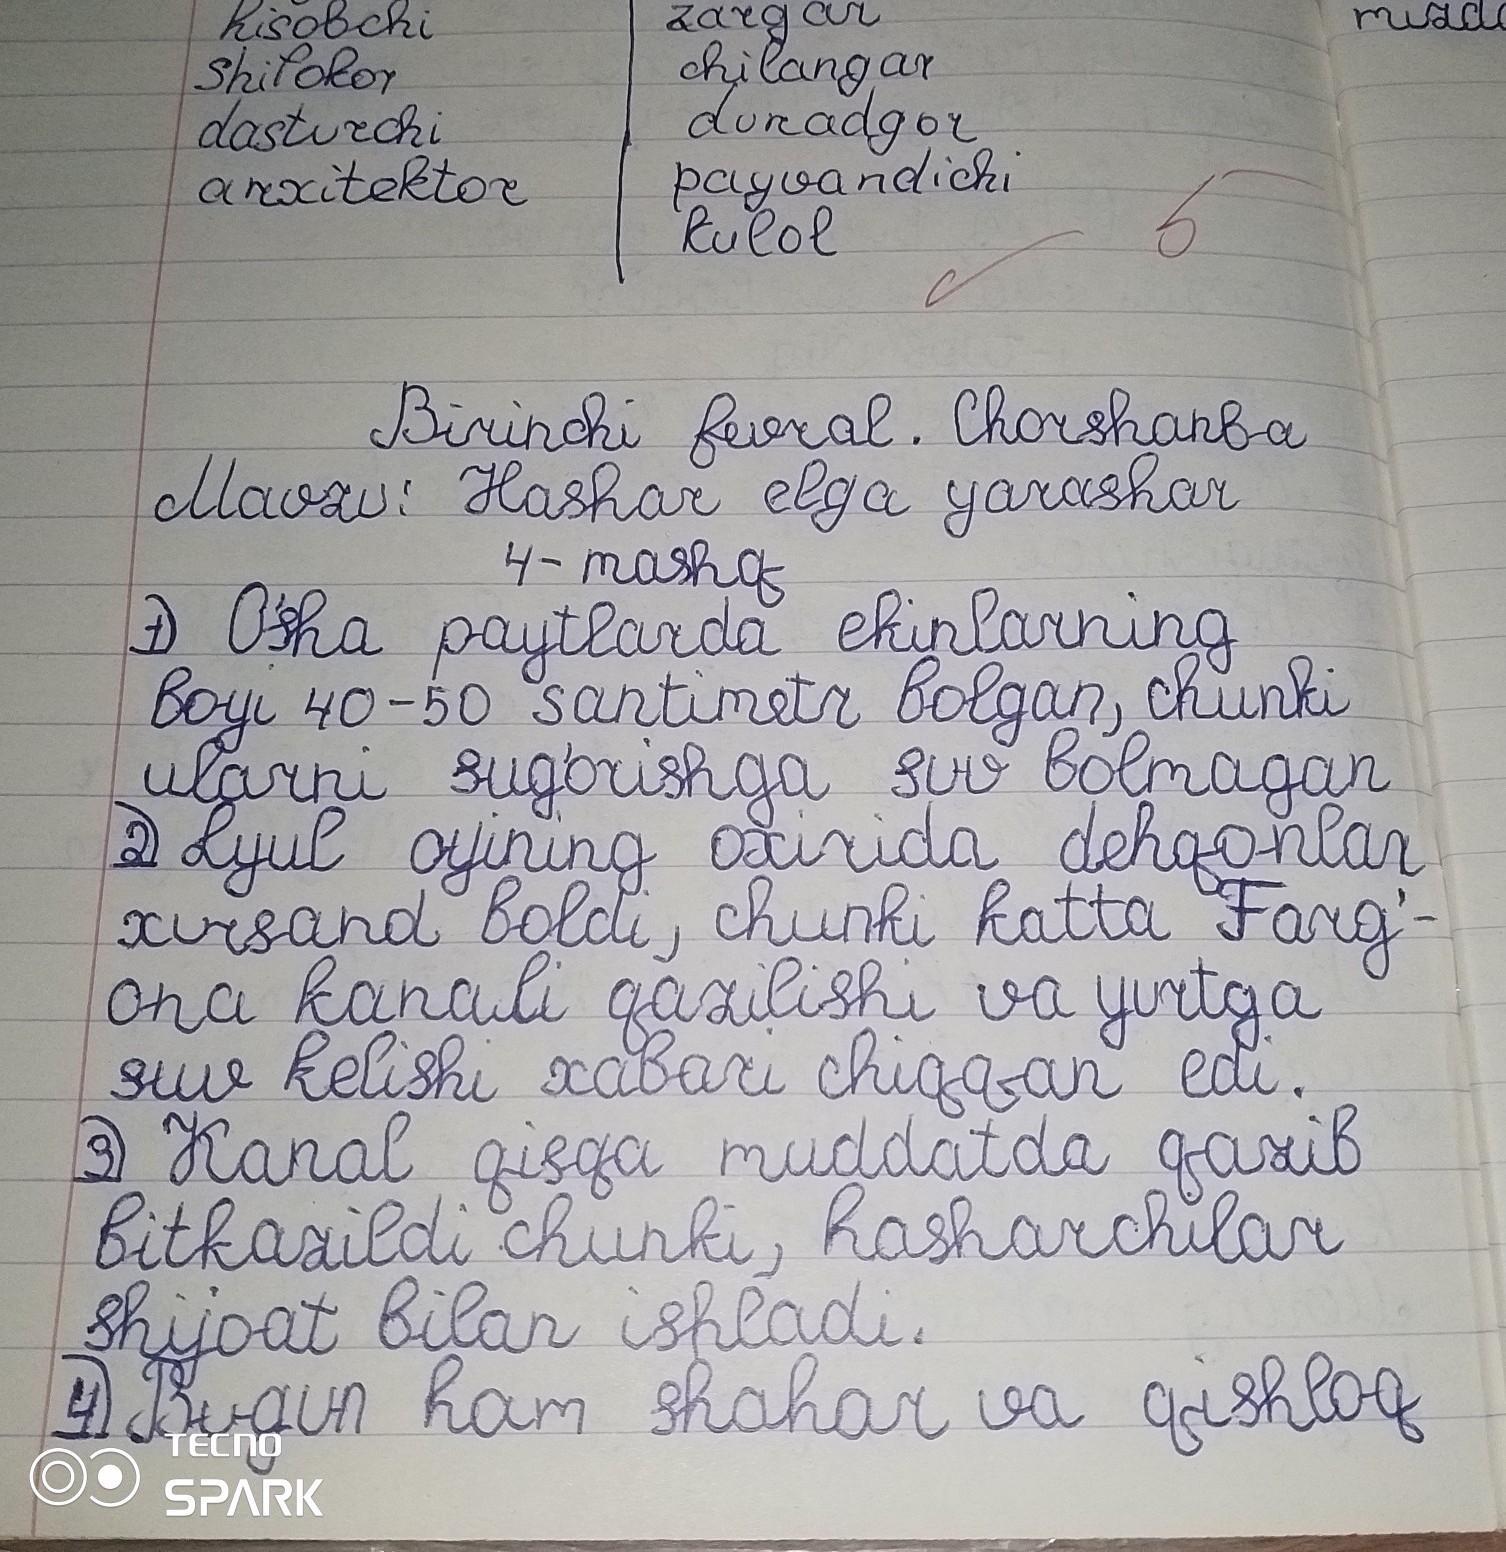 hisobchi
shifokor
dasturchi
arxitektor
zargar
chilangar
duradgor
payvandichi
kulol
5
Birinchi fevral. Chorshanba
Mavzu: Hashar elga yarashar
4-mashq
1) O'sha paytlarda ekinlarning
boyi 40-50 santimetr bolgan, chunki
ularni sug'orishga suv bolmagan
2) Iyul oyining oxirida dehqonlar
xursand boldi, chunki katta Farg'-
ona kanali qazilishi va yurtga
suv kelishi xabari chiqqan edi.
3) Kanal qisqa muddatda qazib
bitkazildi chunki, hasharchilar
shijoat bilan ishladi.
4) Bugun ham shahar va qishloq
TECNO
SPARK